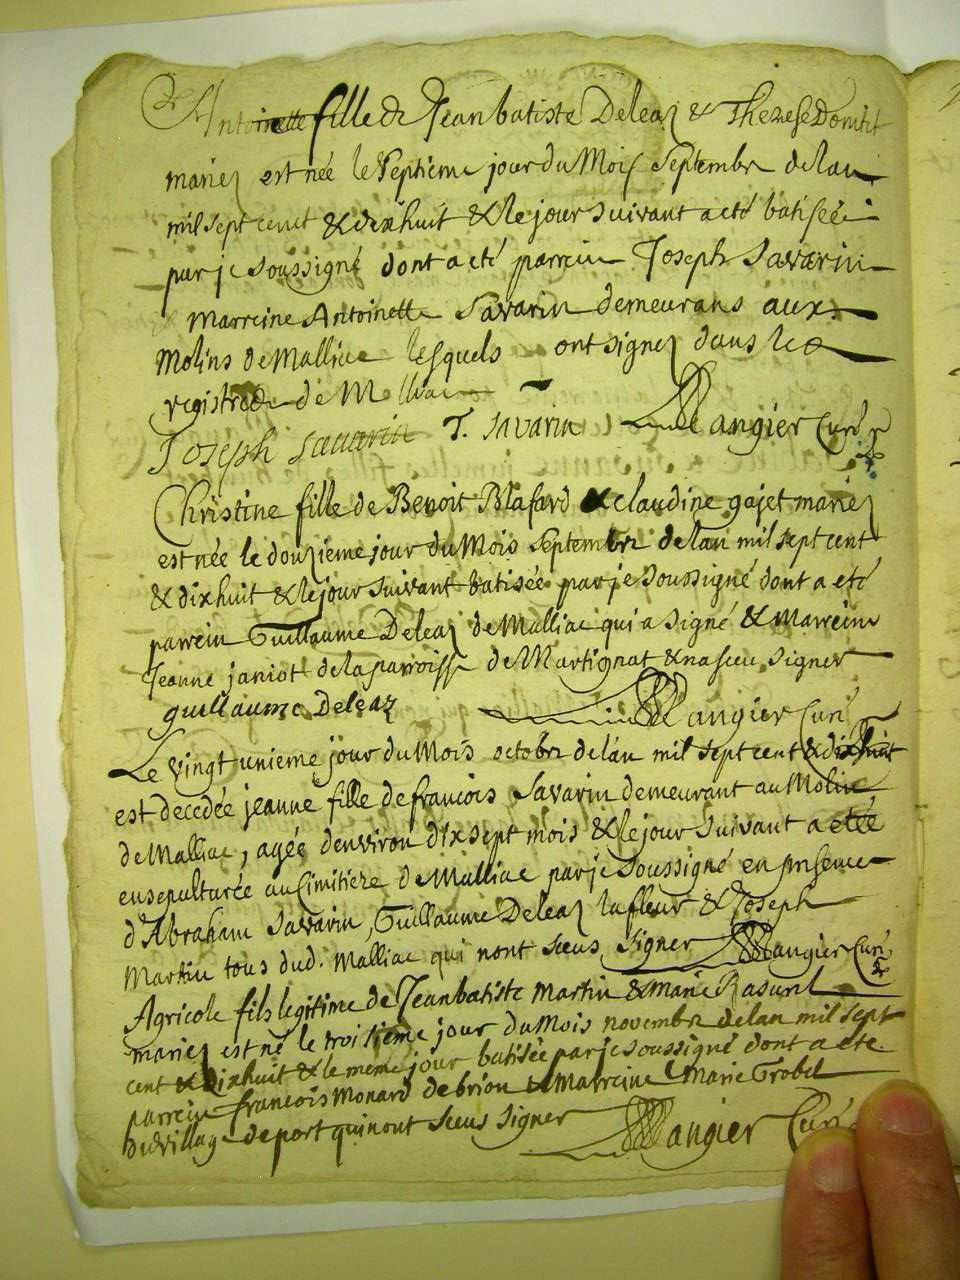 Antoinette fille de Jeanbatiste Deleaz & Therese Domitit
mariez est née le septieme jour du Mois septembre de lan
mil sept cent & dixhuit & le jour suivant a eté batisée
par je soussigné dont a eté parrein Joseph Savarin
Marreine Antoinette Savarin demeurans aux
Molins de Malliac lesquels ont signez dans le
registre de Malliac
Joseph Savarin T. Savarin Mangier Curé
Christine fille de Benoit Blafard & claudine gajet mariez
est née le douzieme jour du Mois septembre de lan mil sept cent
& dixhuit & le jour suivant batisée par je soussigné dont a eté
parrein Guillaume Deleaz de Malliac qui a signé & Marreine
Jeanne janiot de la parroisse de Martignat & na sceu signer
guillaume Deleaz Mangier Curé
Le vingt unieme jour du Mois octobre de lan mil sept cent & dixhuit
est decedée jeanne fille de francois Savarin demeurant au Molin
de Malliac, agée denviron dix sept mois & le jour suivant a eté
ensepulturée au Cimitiere de Malliac par je soussigné en presence
d'Abraham Savarin, Guillaume Deleaz lafleur & Joseph
Martin tous dud. Malliac qui nont sceus signer Mangier Curé
Agricole fils legitime de Jeanbatiste Martin & marie Rasurel
mariez est né le troisieme jour du Mois novembre de lan mil sept
cent & dixhuit & le meme jour batisée par je soussigné dont a ete
parrein francois Monard de brion & Marreine Marie Grobel
du village de port qui nont sceus signer Mangier Curé